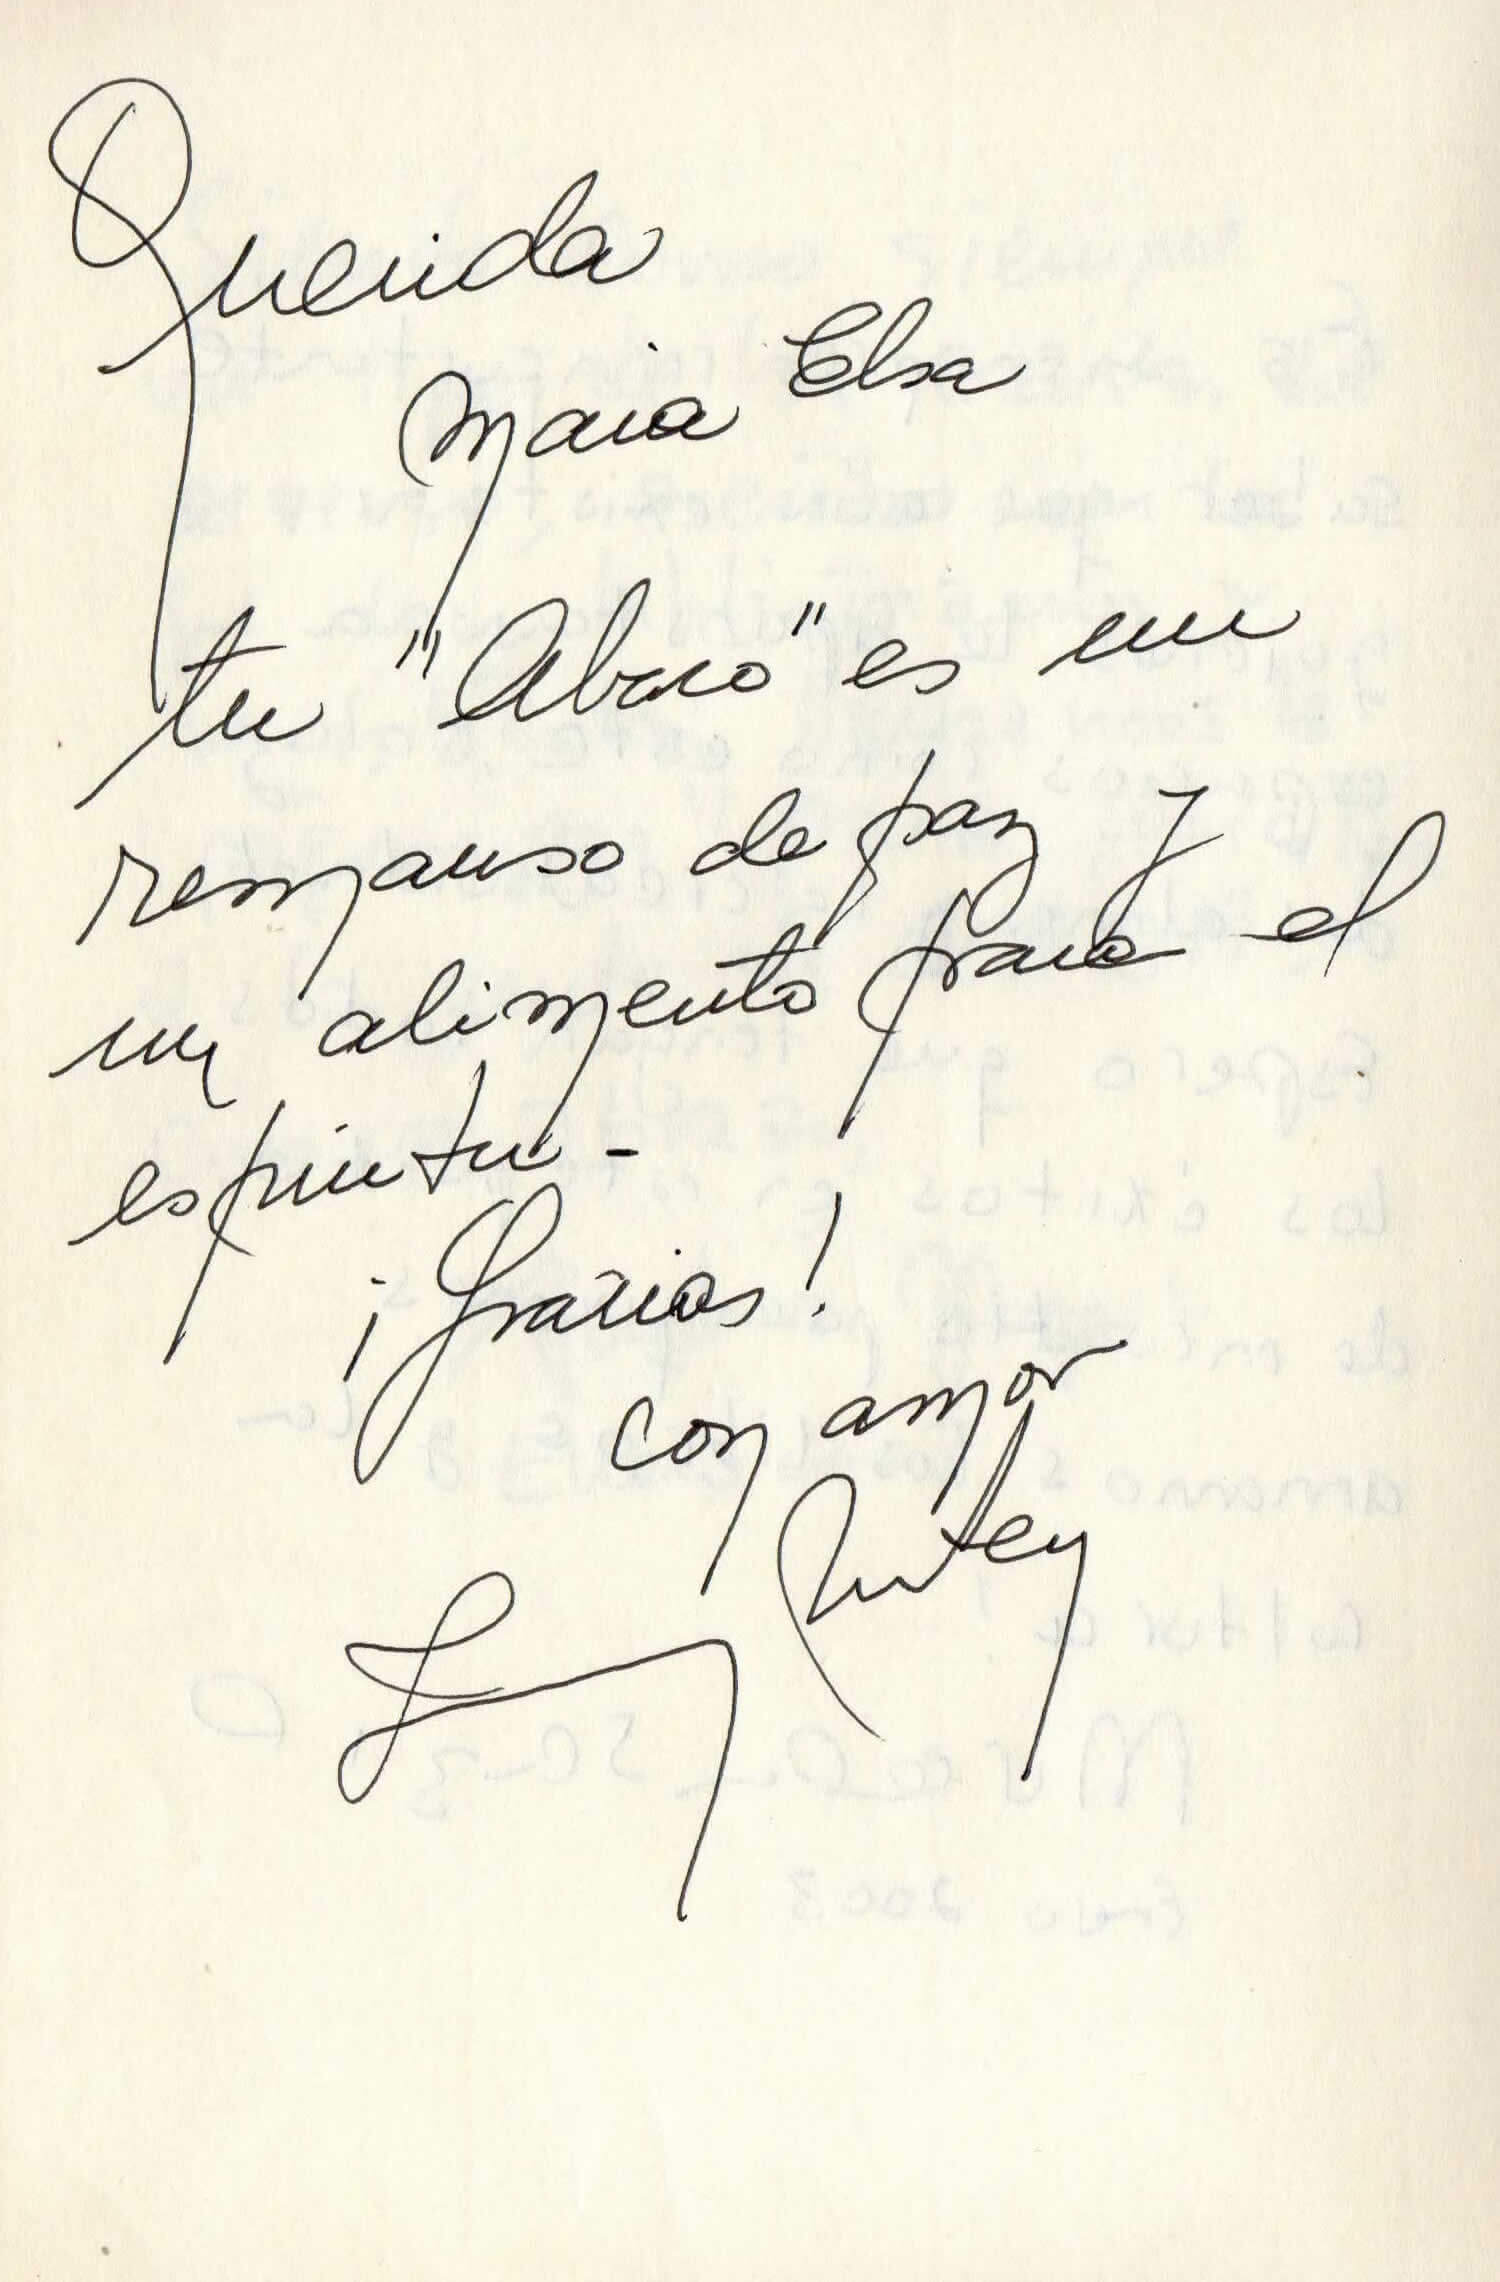 Querida
Maria Elsa
tu "Abaco" es un
remanso de paz y
un alimento para el
espiritu -
¡Gracias!
con amor